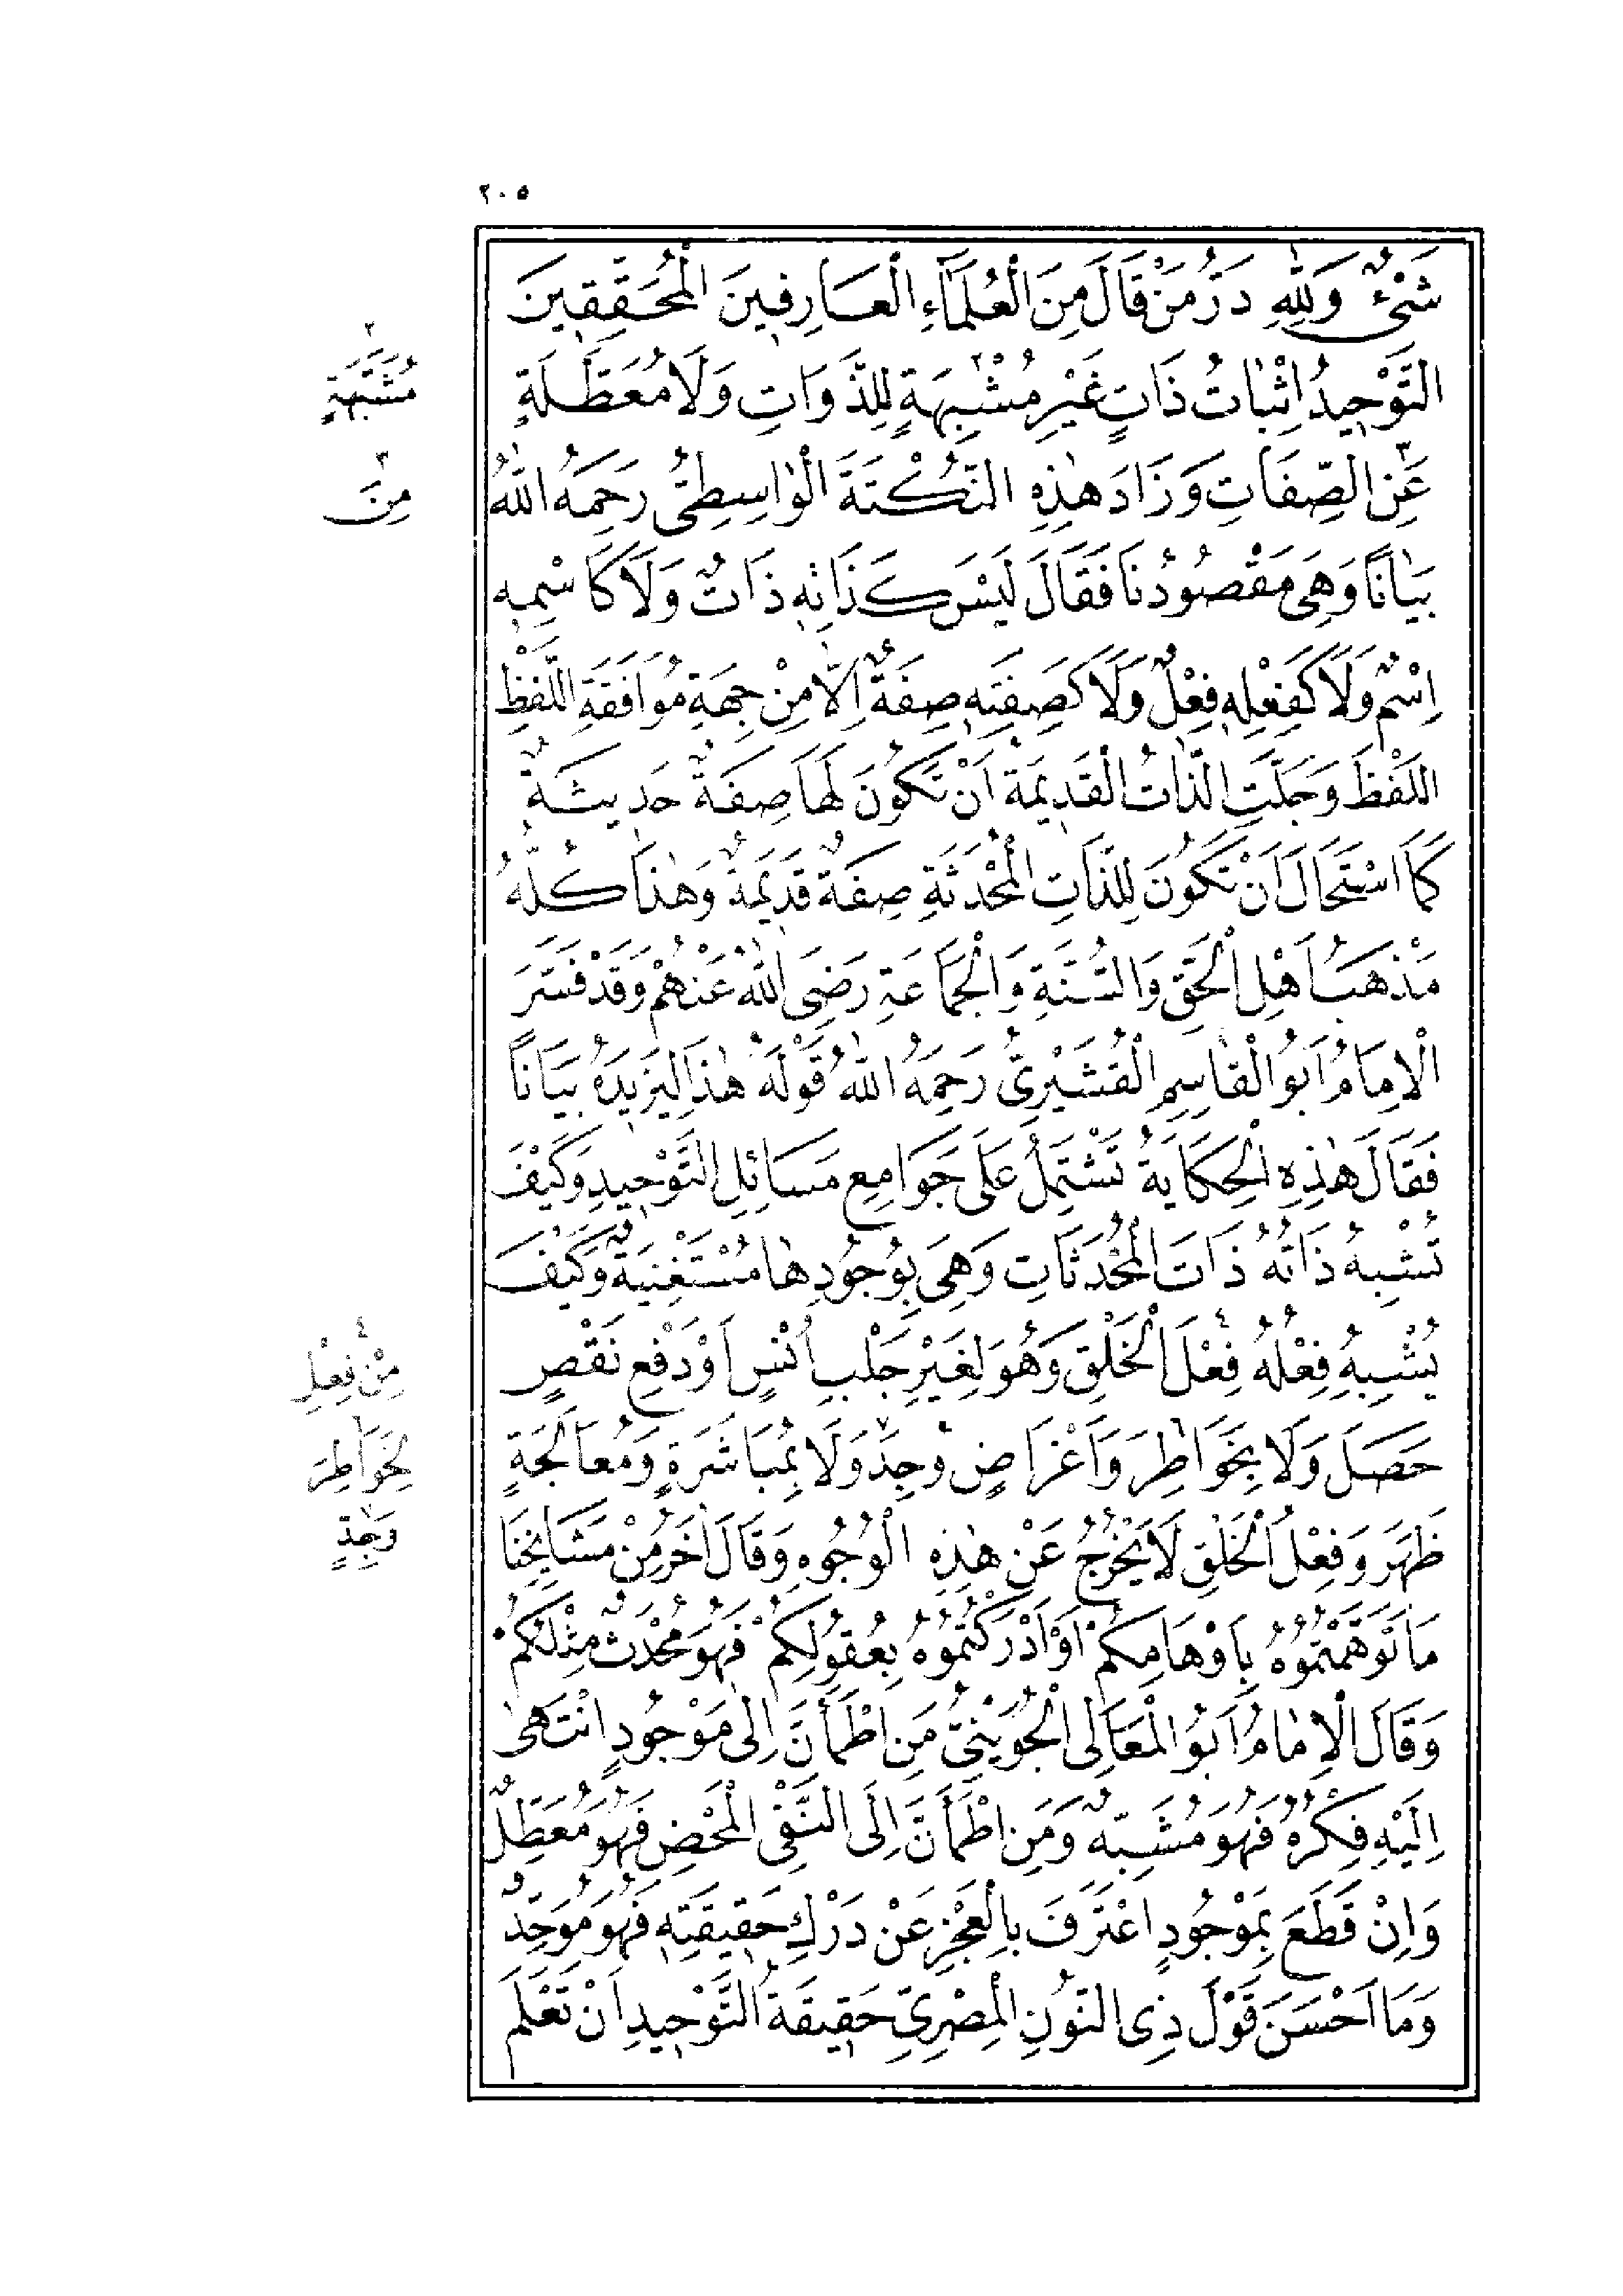 ٢٠٥
شَىْءٌ وَلِلّٰهِ دَرُّ مَنْ قَالَ مِنَ الْعُلَمَاءِ الْعَارِفِينَ الْمُحَقِّقِينَ
التَّوْحِيدُ اِثْبَاتُ ذَاتٍ غَيْرِ مُشْبِهَةٍ ٢ لِلذَّوَاتِ وَلَا مُعَطَّلَةٍ
عَنِ ٣ الصِّفَاتِ وَزَادَ هٰذِهِ النُّكْتَةَ الْوَاسِطِىُّ رَحِمَهُ اللّٰهُ
بَيَانًا وَهِىَ مَقْصُودُنَا فَقَالَ لَيْسَ كَذَاتِهِ ذَاتٌ وَلَا كَاسْمِهِ
اِسْمٌ وَلَا كَفِعْلِهِ فِعْلٌ وَلَا كَصِفَتِهِ صِفَةٌ اِلَّا مِنْ جِهَةِ مُوَافَقَةِ اللَّفْظِ
اللَّفْظَ وَجَلَّتِ الذَّاتُ الْقَدِيمَةُ اَنْ تَكُونَ لَهَا صِفَةٌ حَدِيثَةٌ
كَمَا اسْتَحَالَ اَنْ تَكُونَ لِلذَّاتِ الْمُحْدَثَةِ صِفَةٌ قَدِيمَةٌ وَهٰذَا كُلُّهُ
مَذْهَبُ اَهْلِ الْحَقِّ وَالسُّنَّةِ وَالْجَمَاعَةِ رَضِىَ اللّٰهُ عَنْهُمْ وَقَدْ فَسَّرَ
الْاِمَامُ اَبُو الْقَاسِمِ الْقُشَيْرِىُّ رَحِمَهُ اللّٰهُ قَوْلَهُ هٰذَا لِيَزِيدَهُ بَيَانًا
فَقَالَ هٰذِهِ الْحِكَايَةُ تَشْتَمِلُ عَلَى جَوَامِعِ مَسَائِلِ التَّوْحِيدِ وَكَيْفَ
تُشْبِهُ ذَاتُهُ ذَاتَ الْمُحْدَثَاتِ وَهِىَ بِوُجُودِهَا مُسْتَغْنِيَةٌ وَكَيْفَ
يُشْبِهُ فِعْلُهُ فِعْلَ ٤ الْخَلْقِ وَهُوَ لِغَيْرِ جَلْبِ اُنْسٍ اَوْ دَفْعِ نَقْصٍ
حَصَلَ وَلَا بِخَوَاطِرَ ٦ وَاَغْرَاضٍ وُجِدَ ٧ وَلَا بِمُبَاشَرَةٍ وَمُعَالَجَةٍ
ظَهَرَ وَفِعْلُ الْخَلْقِ لَا يَخْرُجُ عَنْ هٰذِهِ الْوُجُوهِ وَقَالَ اٰخَرُ مِنْ مَشَايِخِنَا
مَا تَوَهَّمْتُمُوهُ بِاَوْهَامِكُمْ اَوْ اَدْرَكْتُمُوهُ بِعُقُولِكُمْ فَهُوَ مُحْدَثٌ مِثْلُكُمْ
وَقَالَ الْاِمَامُ اَبُو الْمَعَالِى الْجُوَيْنِىُّ مَنِ اطْمَأَنَّ اِلَى مَوْجُودٍ انْتَهَى
اِلَيْهِ فِكْرُهُ فَهُوَ مُشَبِّهٌ وَمَنِ اطْمَأَنَّ اِلَى النَّفْىِ الْمَحْضِ فَهُوَ مُعَطِّلٌ
وَاِنْ قَطَعَ بِمَوْجُودٍ اعْتَرَفَ بِالْعَجْزِ عَنْ دَرْكِ حَقِيقَتِهِ فَهُوَ مُوَحِّدٌ
وَمَا اَحْسَنَ قَوْلَ ذِى النُّونِ الْمِصْرِىِّ حَقِيقَةُ التَّوْحِيدِ اَنْ تَعْلَمَ
٢
مُشَبَّهَةٍ
٣
مِنَ
٤
مِنْ فِعْلِ
٦
لِخَوَاطِرَ
وَجِدَةٍ